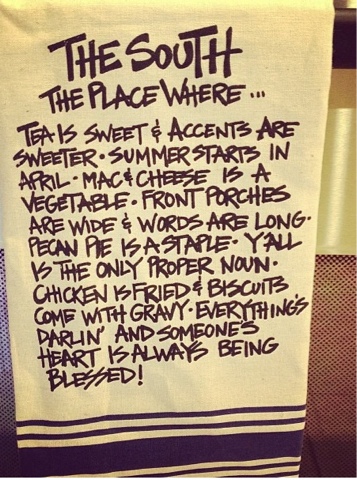 THE SOUTH
THE PLACE WHERE...
TEA IS SWEET & ACCENTS ARE
SWEETER • SUMMER STARTS IN
APRIL • MAC & CHEESE IS A
VEGETABLE • FRONT PORCHES
ARE WIDE & WORDS ARE LONG •
PECAN PIE IS A STAPLE • Y'ALL
IS THE ONLY PROPER NOUN •
CHICKEN IS FRIED & BISCUITS
COME WITH GRAVY • EVERYTHING'S
DARLIN' AND SOMEONE'S
HEART IS ALWAYS BEING
BLESSED!